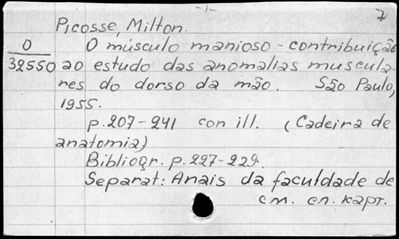 7
Picosse, Milton.
O músculo manioso - contribuição
O
32550 ao estudo das anomalias muscula-
res do dorso da mão. São Paulo,
1955.
p.207-241 con ill. (Cadeira de
anatomia)
Bibliogr. p.227-229.
Separat: Anais da faculdade de
см. сл. карт.